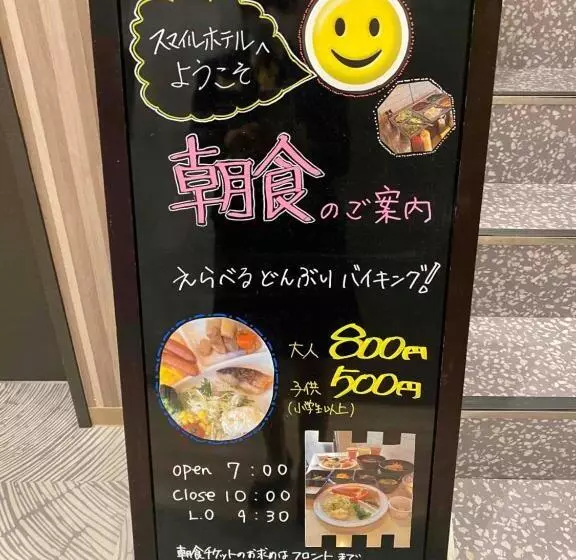 スマイルホテルへ
ようこそ
朝食のご案内
えらべるどんぶりバイキング!
大人 800円
子供 500円
(小学生以上)
open 7:00
close 10:00
L.O 9:30
朝食チケットのお求めはフロントまで